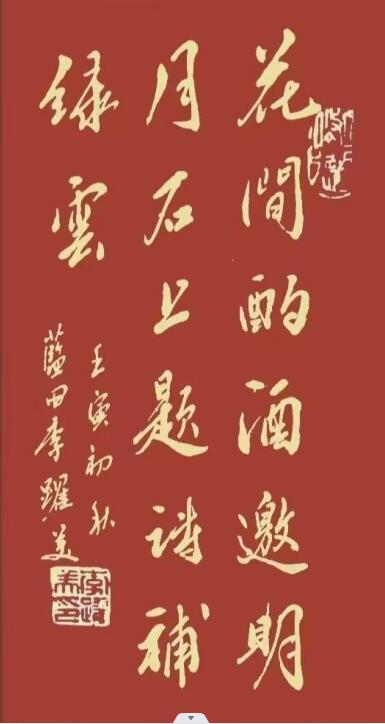 花間酌酒邀明
月石上題詩補
綠雲
壬寅初秋
藍田李躍美